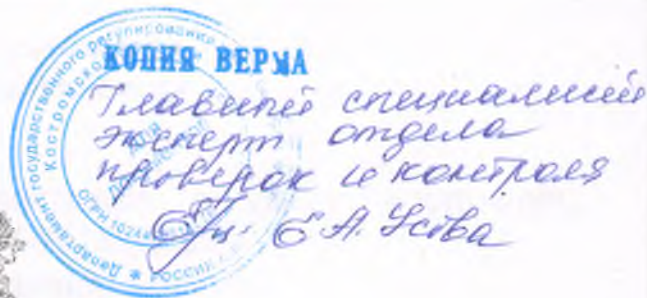 КОПИЯ ВЕРНА
Главный специалист
эксперт отдела
проверок и контроля
Е.А.
Департамент государственного регулирования
Костромской
ОГРН 1024
РОССИЯ